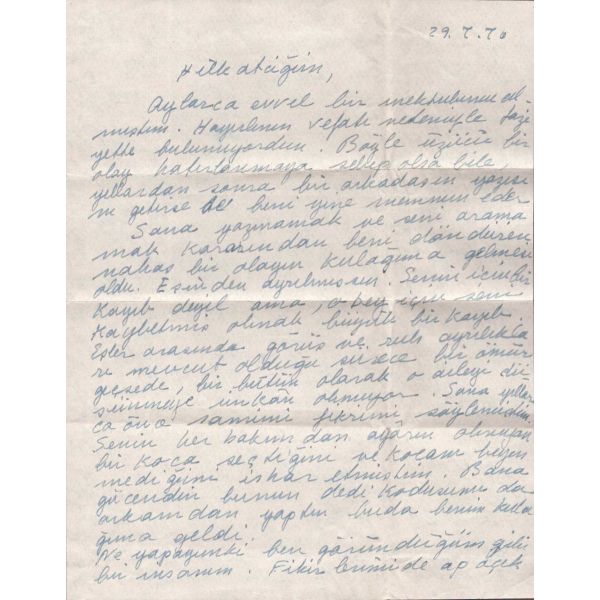 29.7.70
Hilkatciğim,
Aylarca evvel bir mektubunu al-
mıştım. Hayrinin vefatı nedeniyle tazi
yette bulunuyordun. Böyle üzücü bir
olay hatırlanmaya sebep olsa bile,
yıllardan sonra bir arkadaşın yazısı
nı getirse beni yine memnun eder
Sana yazmamak ve seni arama
mak kararından beni döndüren
nahoş bir olayın kulağıma gelmesi
oldu. Eşinden ayrılmışsın. Senin için bir
Kayıb değil ama, o bey için seni
Kaybetmiş olmak büyük bir kayıb.
Eşler arasında görüş ve ruh ayrılıkla
rı mevcut olduğu sürece bir ömür
geçsede, bir bütün olarak o aileyi dü
şünmeye imkân olmuyor. Sana yıllar
ca önce samimi fikrimi söylemiştim.
Senin her bakımdan ayarın olmayan
bir koca seçtiğini ve kocanı beyen
mediğimi izhar etmiştim. Bana
gücendin bunun dedi kodusunu da
arkamdan yaptın buda benim kula
ğıma geldi.
Ne yapayımki ben göründüğüm gibi
bir insanım. Fikirlerimide ap açık